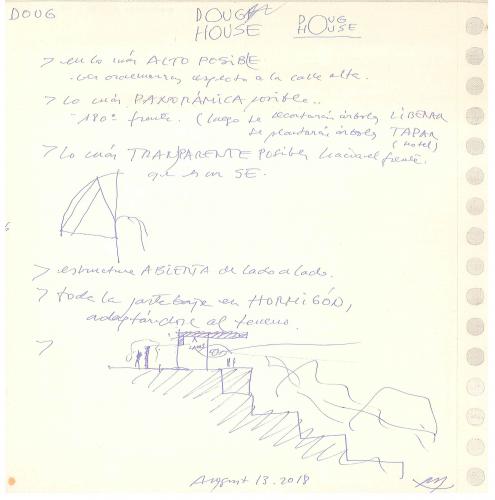 DOUG
DOUG
HOUSE
DOUG
HOUSE
> en lo más ALTO POSIBLE
ver ordenanzas respecto a la calle alta.
> Lo más PANORÁMICA posible..
-180° frente. (luego se recortarán árboles LIBERAR
se plantarán árboles TAPAR
(hotel)
> Lo más TRANSPARENTE posible hacia el frente.
que es un SE.
> estructura ABIERTA de lado a lado.
> toda la parte baja en HORMIGÓN,
adaptándose al terreno.
>
August 13. 2018